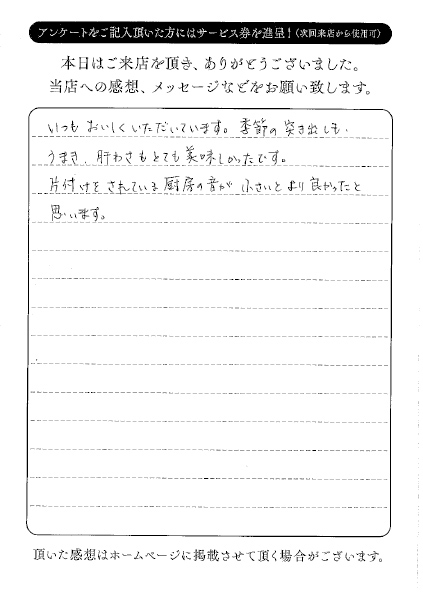 アンケートをご記入頂いた方にはサービス券を進呈！（次回来店から使用可）
本日はご来店を頂き、ありがとうございました。
当店への感想、メッセージなどをお願い致します。
いつもおいしくいただいています。季節の突き出しも
うまき、肝わさもとても美味しかったです。
片付けをされている厨房の音が小さいとより良かったと
思います。
頂いた感想はホームページに掲載させて頂く場合がございます。